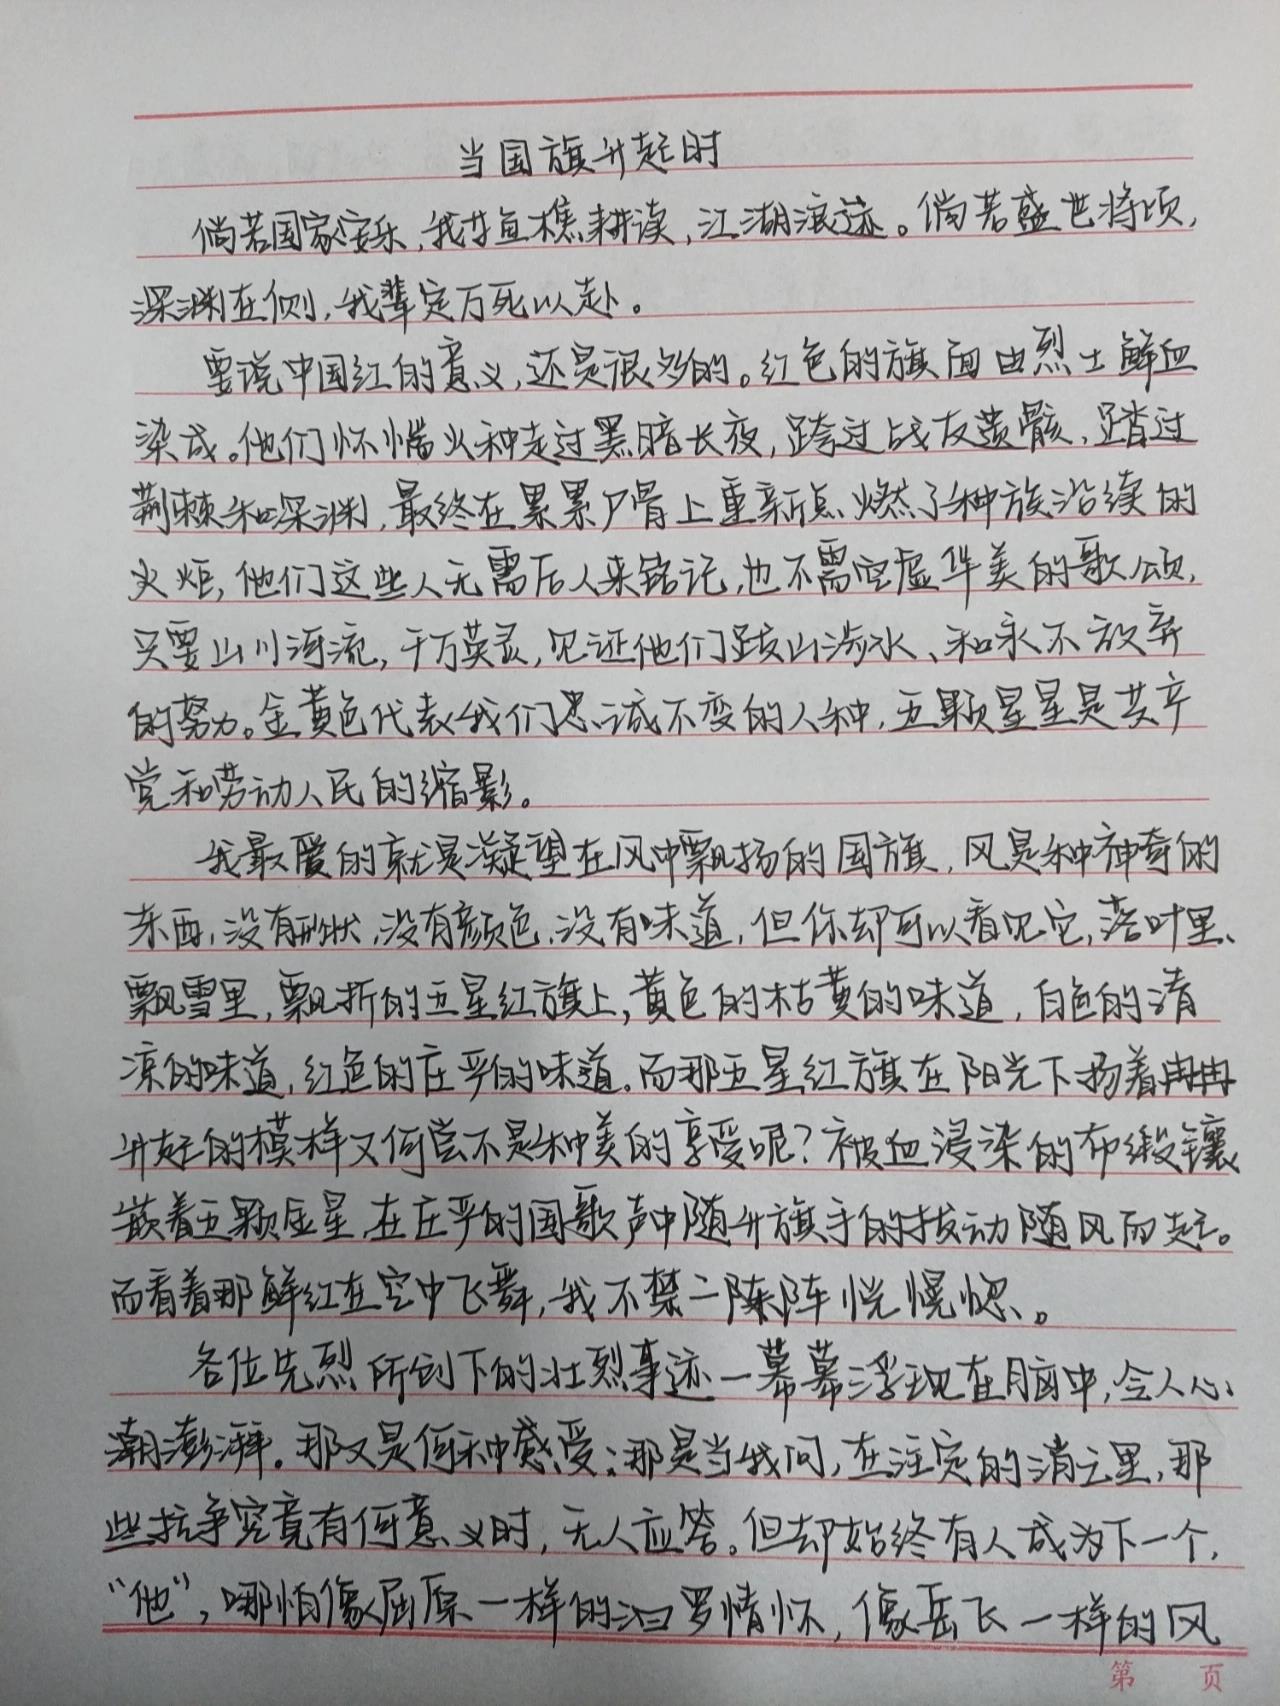 当国旗升起时
倘若国家安乐，我才鱼樵耕读，江湖浪迹。倘若盛世将顷，
深渊在侧，我辈定万死以赴。
要说中国红的意义，还是很多的。红色的旗面由烈士鲜血
染成。他们怀惴火种走过黑暗长夜，跨过战友遗骸，踏过
荆棘和深渊，最终在累累尸骨上重新点燃了种族沿续的
火炬，他们这些人无需后人来铭记，也不需空虚华美的歌颂，
只要山川河流，千万英灵，见证他们跋山涉水、和永不放弃
的努力。金黄色代表我们忠诚不变的人种，五颗星星是共产
党和劳动人民的缩影。
我最爱的就是凝望在风中飘扬的国旗，风是种神奇的
东西，没有形状，没有颜色，没有味道，但你却可以看见它，落叶里、
飘雪里，飘折的五星红旗上，黄色的枯黄的味道，白色的清
凉的味道，红色的庄严的味道。而那五星红旗在阳光下扬着冉冉
升起的模样又何尝不是种美的享受呢？被血浸染的布缎镶
嵌着五颗金星，在庄严的国歌声中随升旗手的拔动随风而起。
而看着那鲜红在空中飞舞，我不禁一阵阵恍惚。
各位先烈所创下的壮烈事迹一幕幕浮现在脑中，令人心
潮澎湃。那又是何种感受：那是当我问，在注定的消亡里，那
些抗争究竟有何意义时，无人应答。但却始终有人成为下一个，
“他”，哪怕像屈原一样的汨罗情怀，像岳飞一样的风
第 页